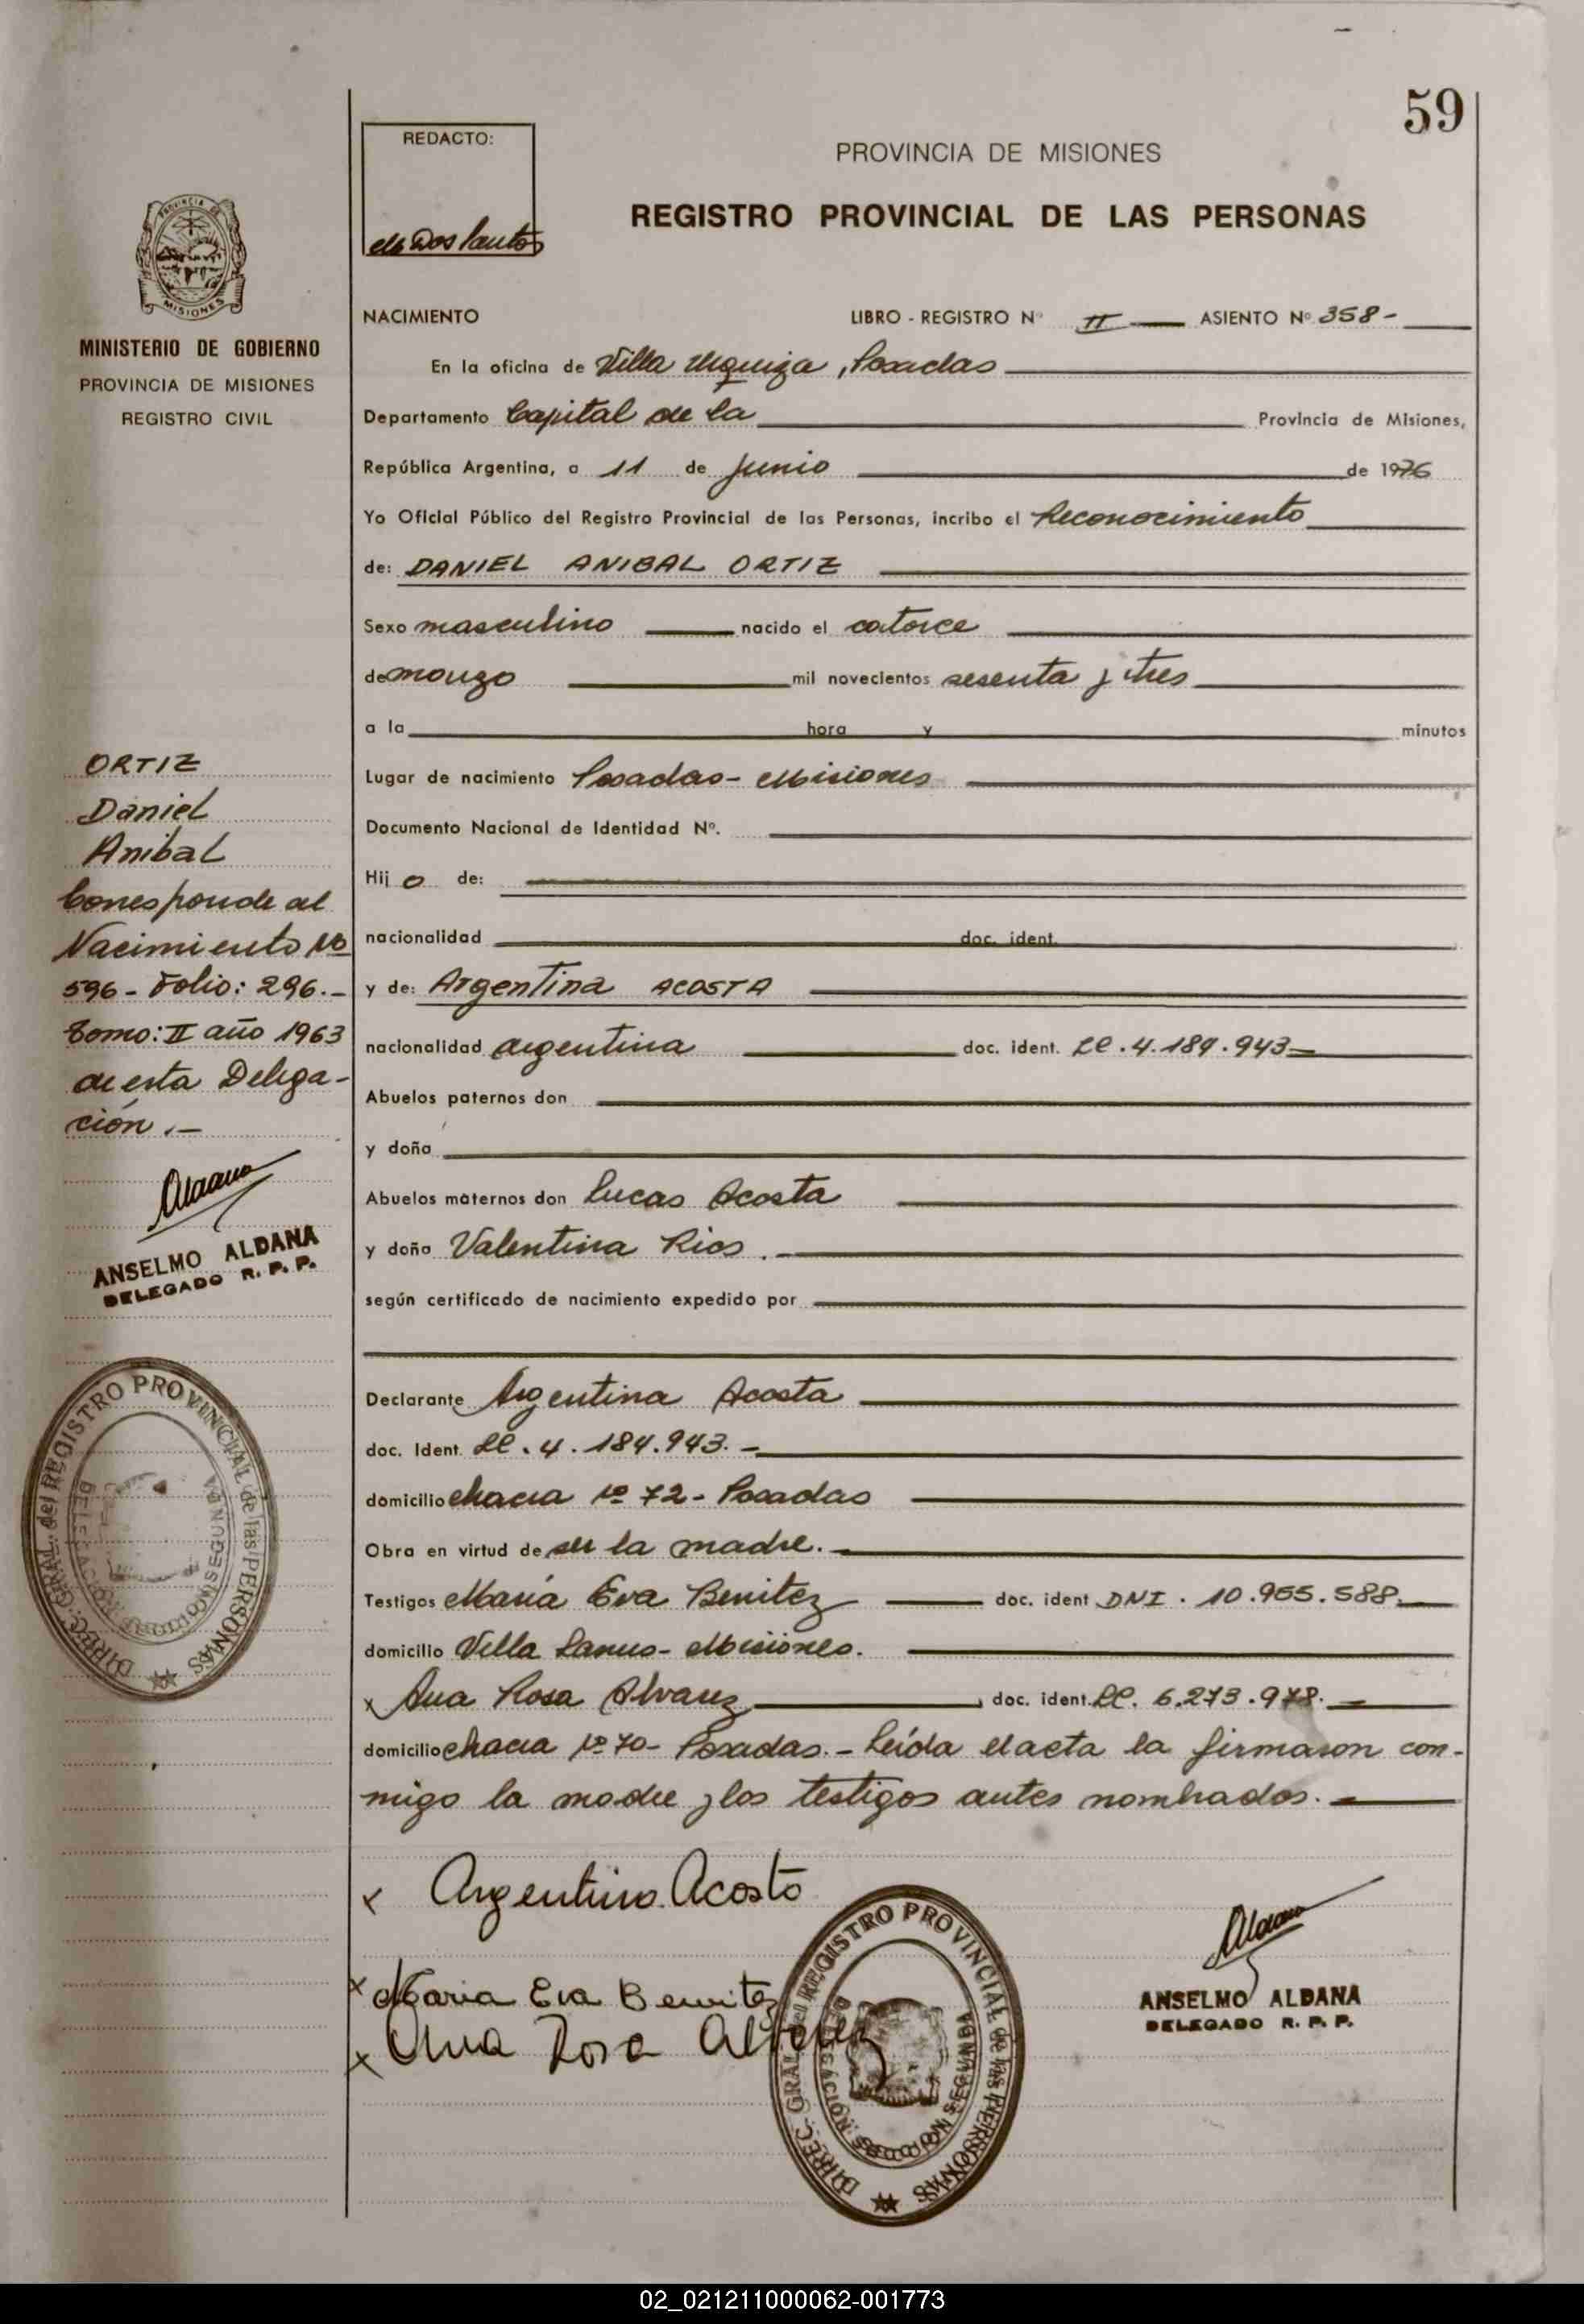 59
REDACTO:
Dos Santos
PROVINCIA DE MISIONES
REGISTRO PROVINCIAL DE LAS PERSONAS
PROVINCIA DE
MISIONES
MINISTERIO DE GOBIERNO
PROVINCIA DE MISIONES
REGISTRO CIVIL
NACIMIENTO LIBRO - REGISTRO Nº II ASIENTO Nº 358-
En la oficina de Villa Urquiza, Posadas
Departamento Capital de la Provincia de Misiones,
República Argentina, a 11 de Junio de 1976
Yo Oficial Público del Registro Provincial de las Personas, incribo el Reconocimiento
de: DANIEL ANIBAL ORTIZ
Sexo masculino nacido el catorce
de marzo mil novecientos sesenta y tres
a la hora y minutos
Lugar de nacimiento Posadas - Misiones
Documento Nacional de Identidad Nº.
Hijo de:
nacionalidad doc. ident.
y de: Argentina ACOSTA
nacionalidad argentina doc. ident. LC. 4.184.943
Abuelos paternos don
y doña
Abuelos maternos don Lucas Acosta
y doña Valentina Rios.
según certificado de nacimiento expedido por
Declarante Argentina Acosta
doc. Ident. LC. 4.184.943.-
domicilio chacra Nº 72 - Posadas
Obra en virtud de ser la madre.
Testigos María Eva Benitez doc. ident DNI. 10.955.588.
domicilio Villa Lanus - Misiones.
x Ana Rosa Alvarez, doc. ident. LC. 6.273.978.
domicilio chacra Nº 70 - Posadas.- Leída el acta la firmaron con-
migo la madre y los testigos antes nombrados.-
x Argentina Acosta
x Maria Eva Benitez
x Ana Rosa Alvarez
ANSELMO ALDANA
DELEGADO R. P. P.
DIREC. GRAL. del REGISTRO PROVINCIAL de las PERSONAS
DELEGACION SECCION SEGUNDA
ORTIZ
Daniel
Anibal
Corresponde al
Nacimiento Nº
596 - Folio: 296.-
Tomo: II año 1963
de esta Delega-
ción.-
Aldana
ANSELMO ALDANA
DELEGADO R. P. P.
DIREC. GRAL. del REGISTRO PROVINCIAL de las PERSONAS
DELEGACION SECCION SEGUNDA
02_021211000062-001773